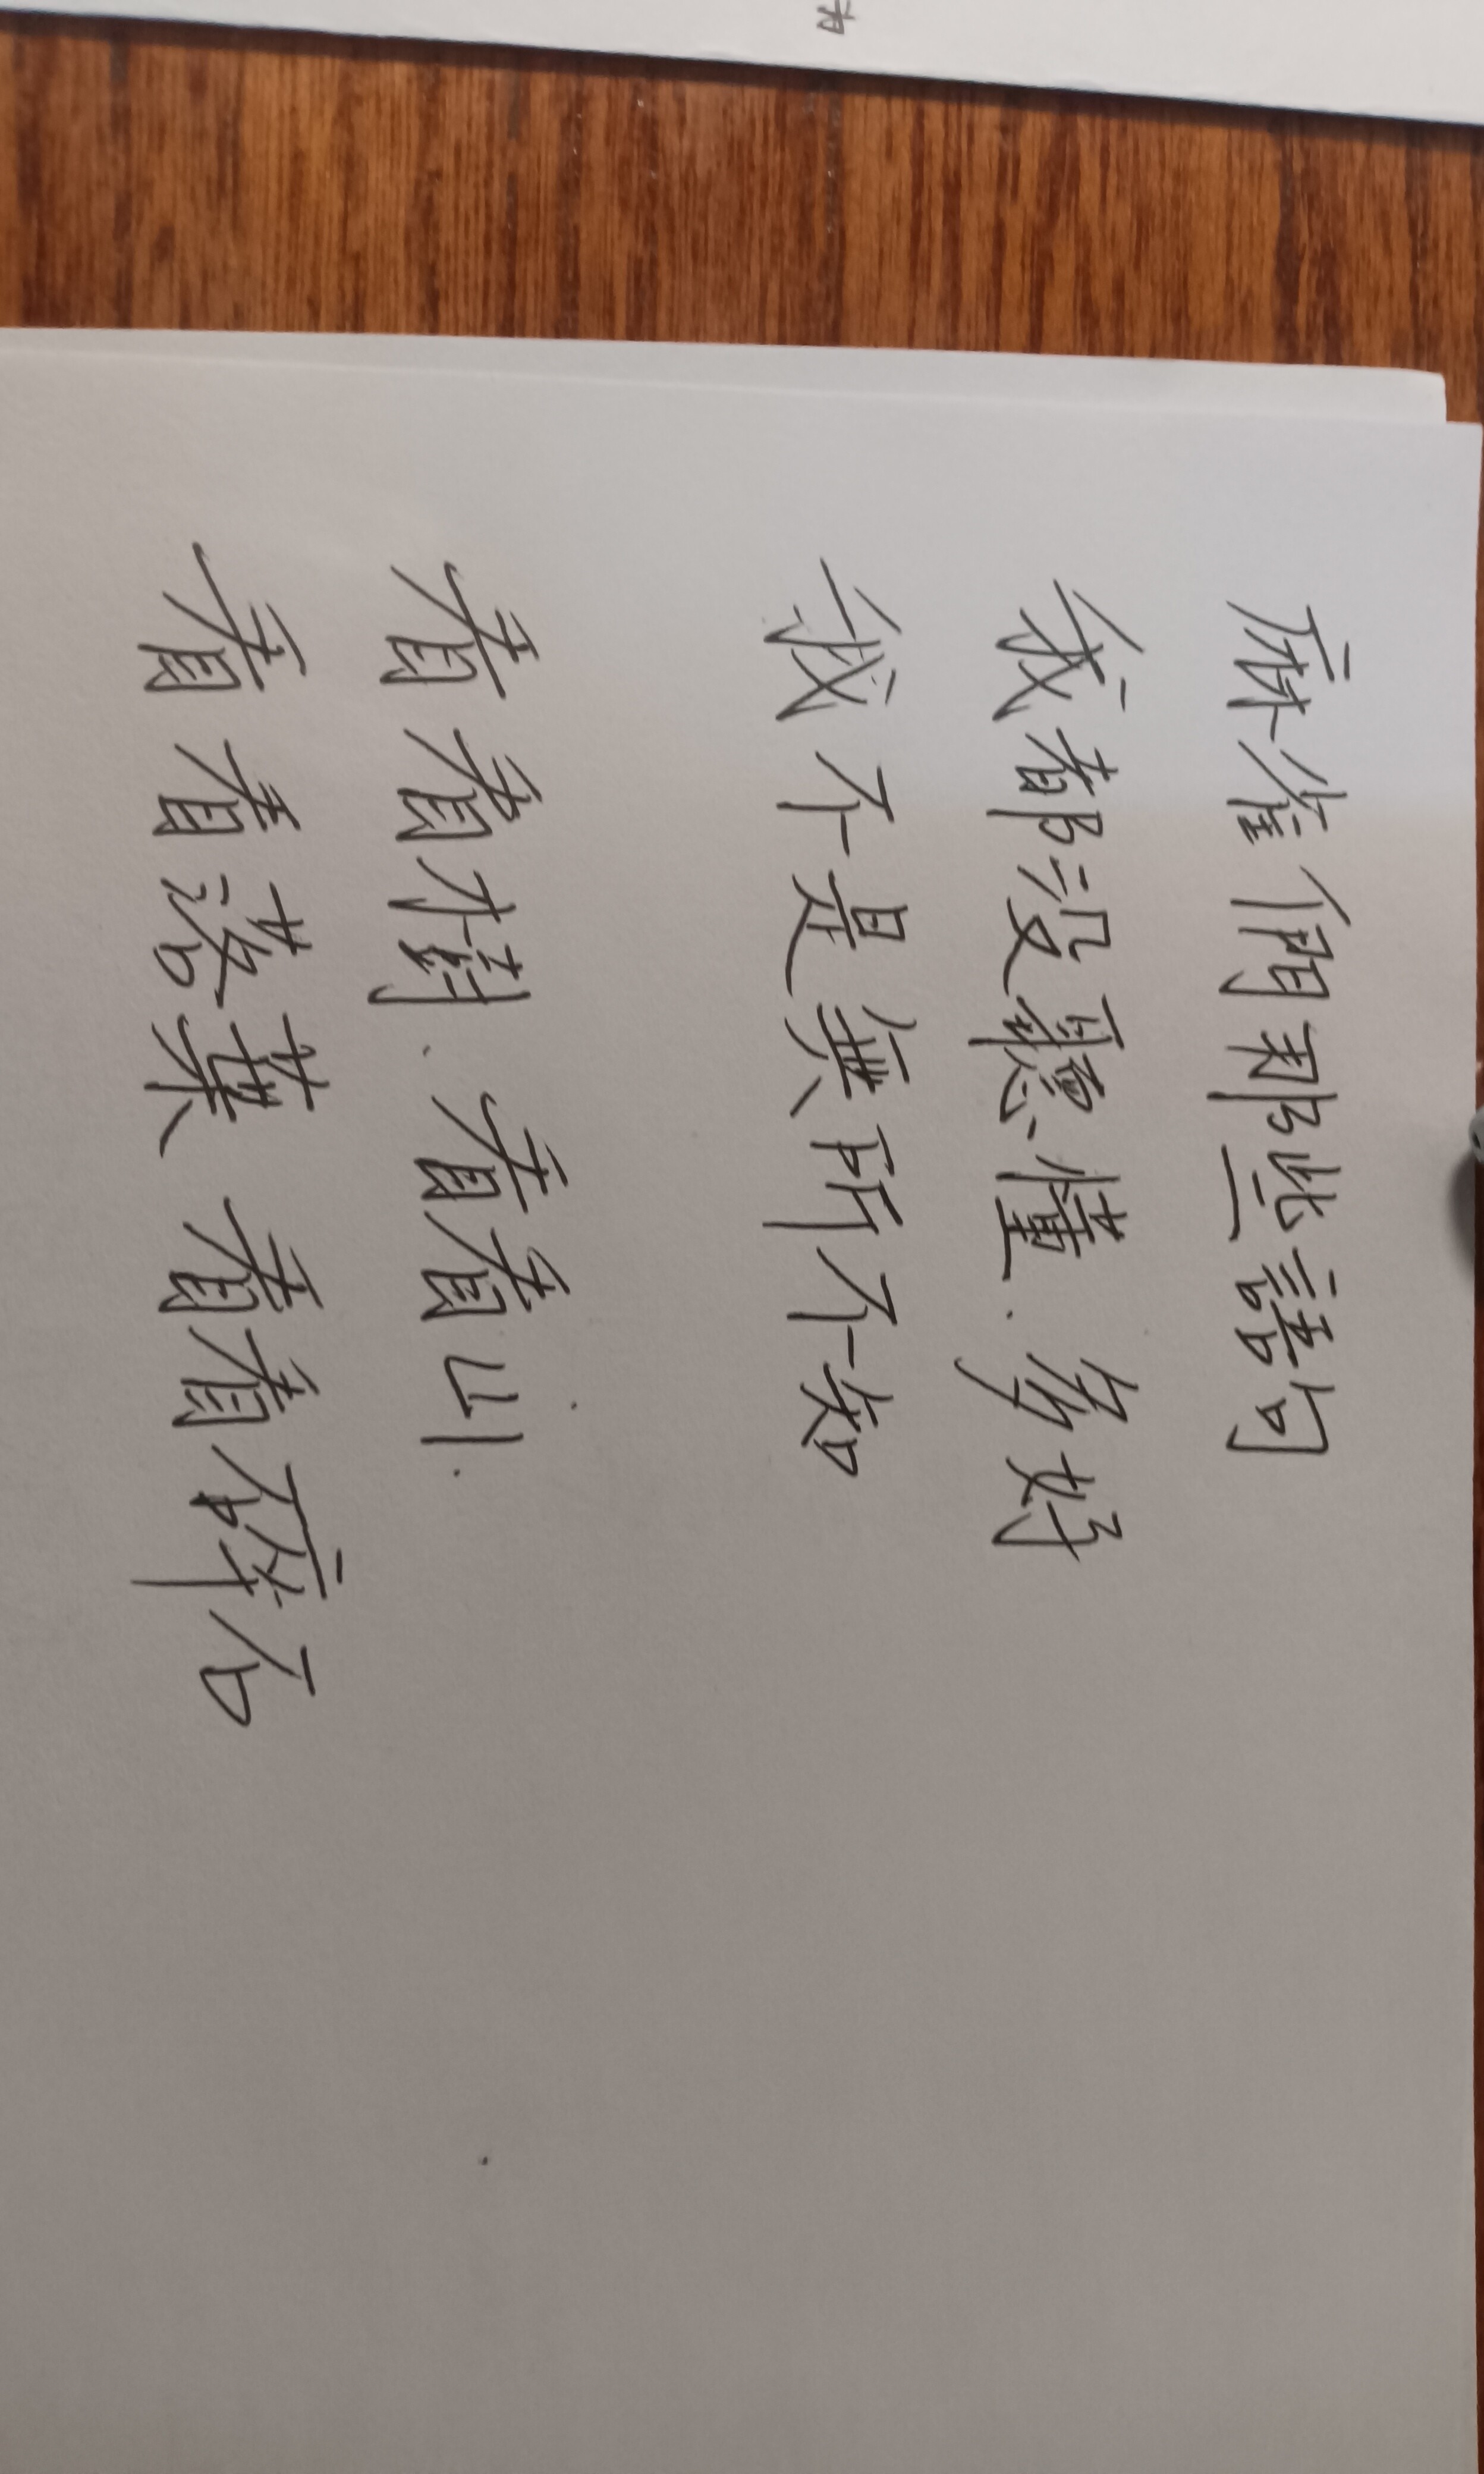 麻雀們那些諺句
我都沒聽懂．多好
我不是無所不知
看看樹、看看山．
看看落葉 看看碎石